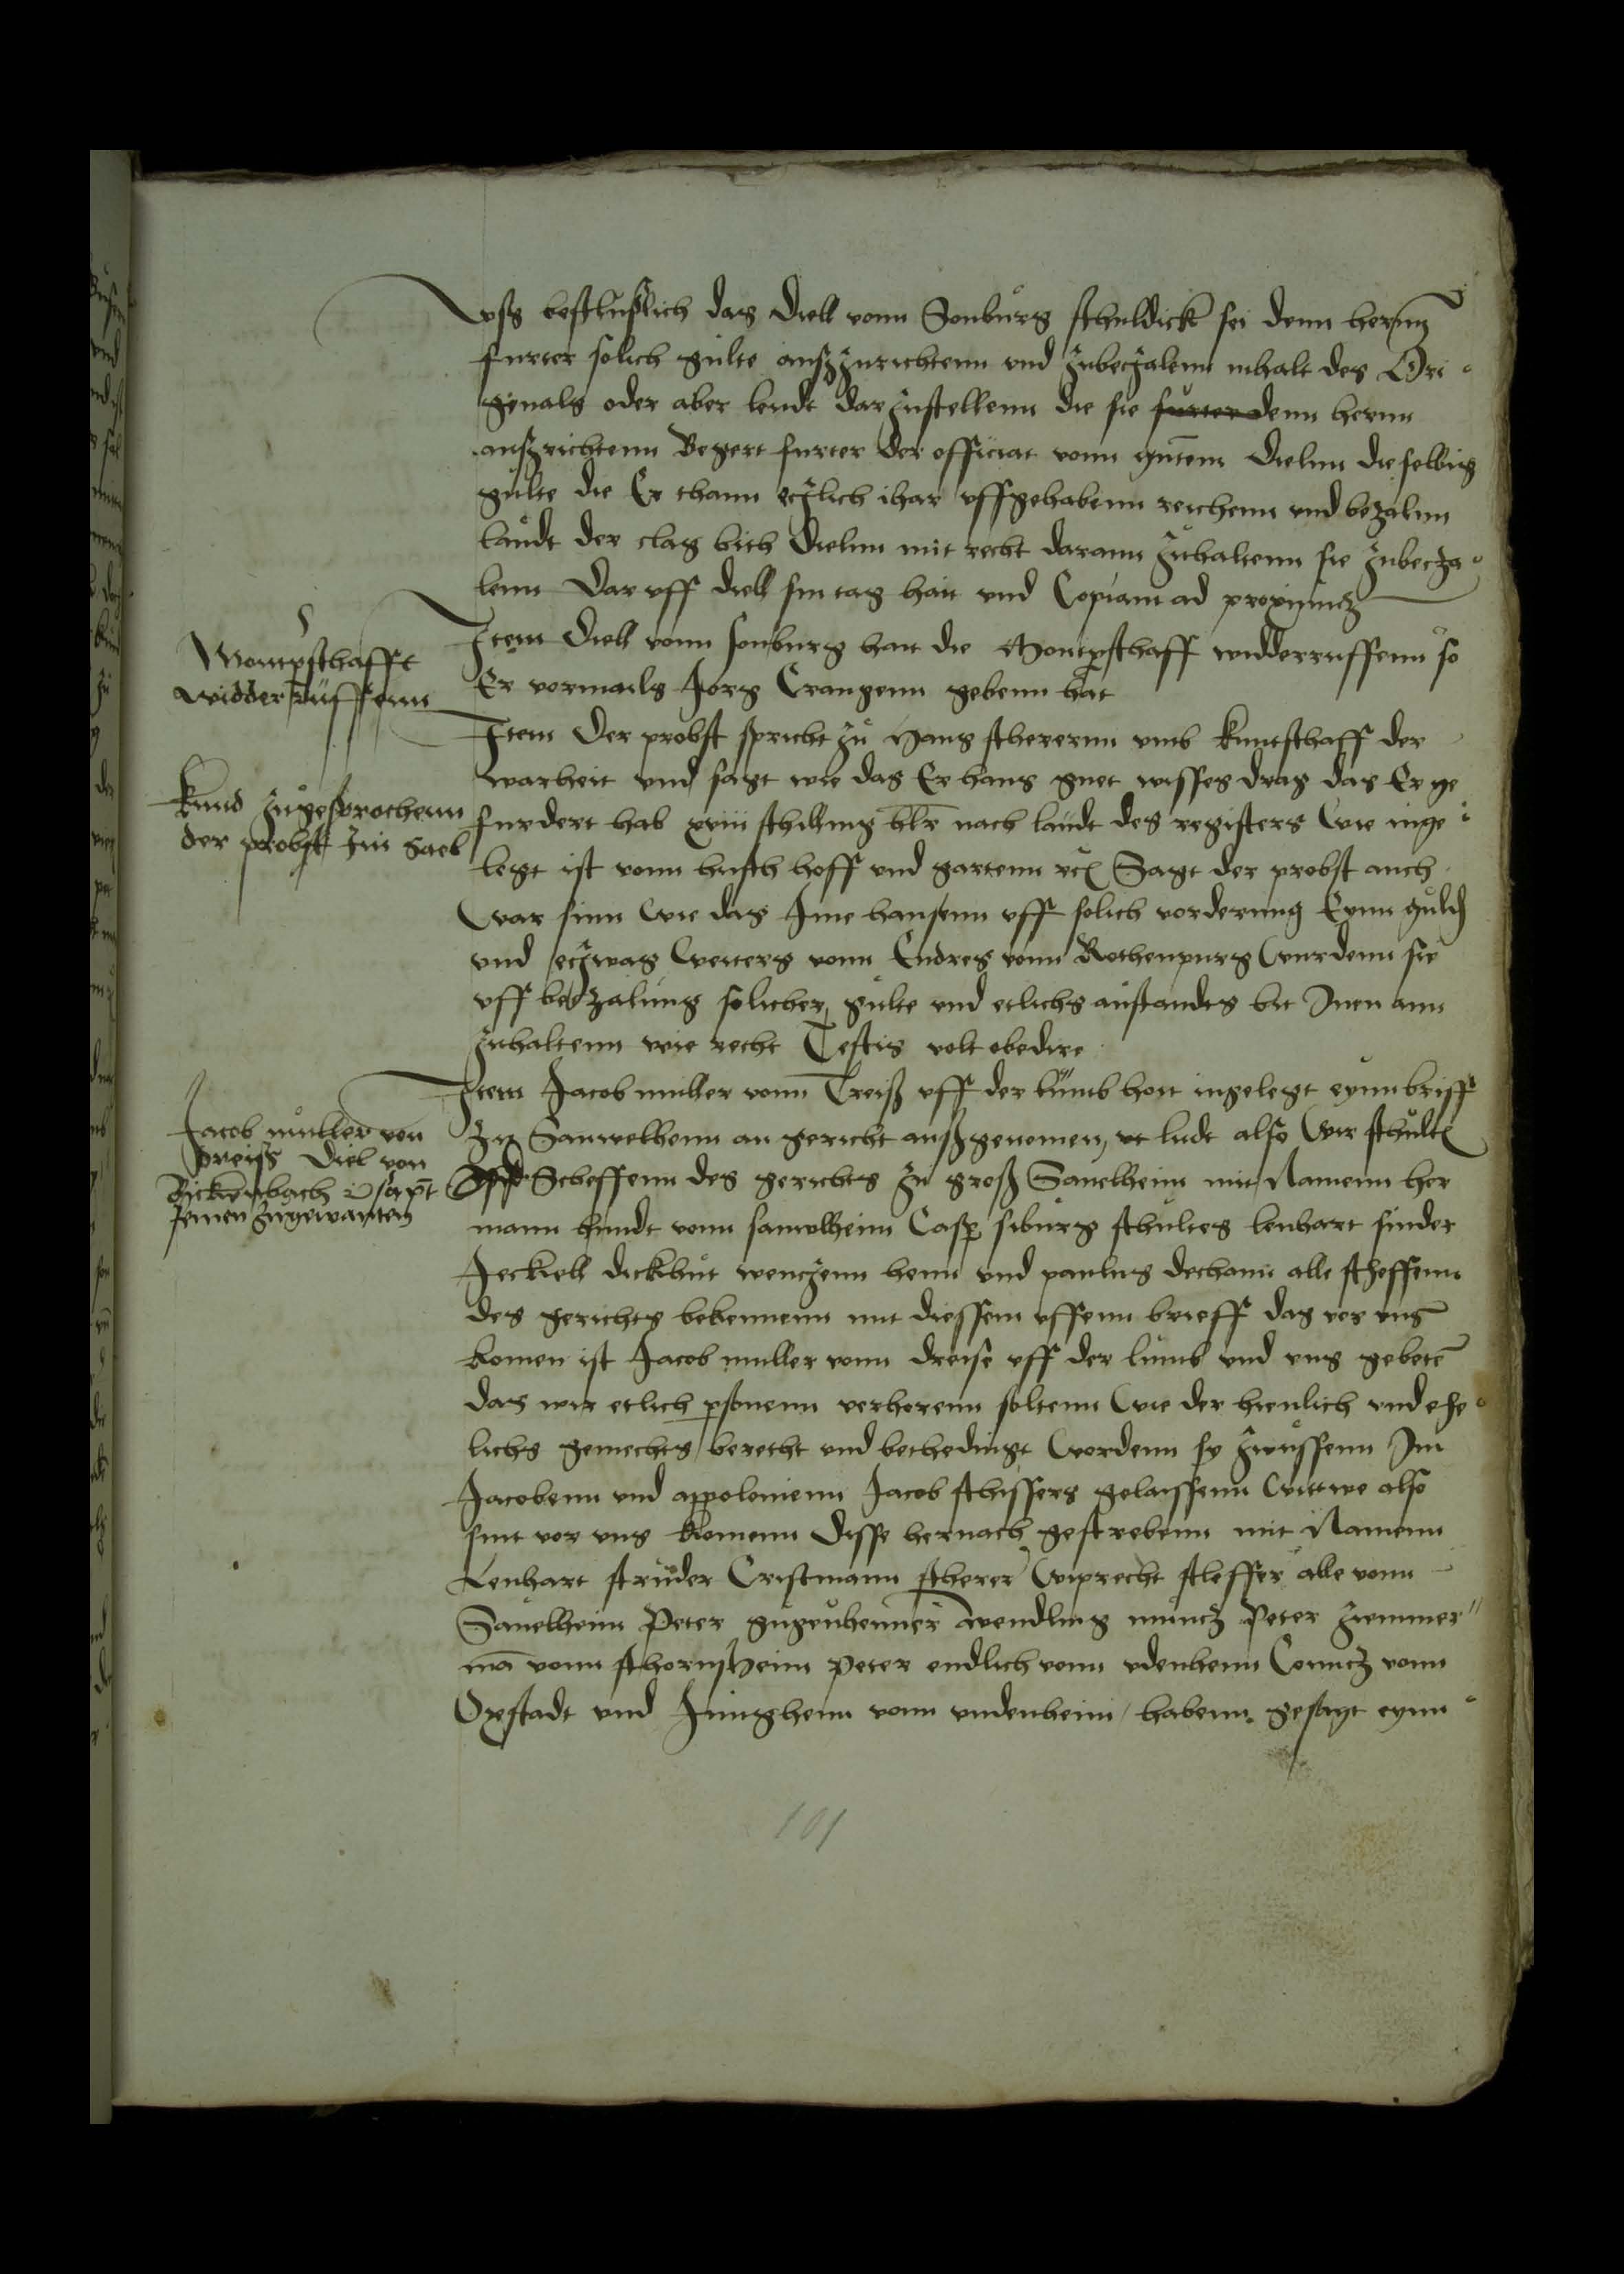 vsß beschlußlich das Diell vonn Sonburg schuldick sei denn hernn
furter solich gulte anszzurichtenn vnd zubeczalenn inhalt des Ori
ginals oder aber leudt darzustellenn die sie furter denn hernn
auszrichtenn Begert furter der officiat vonn Dielnn dieselbig
gulte die Er thann eczlich ihar vffgehabenn reichenn vnd bezalnn
laudt der clag bith Dielnn mit recht darann zuhaltenn sie zubecza
lenn Dar vff diell sin tag hait vnd Copiam ad proximum
Momparschafft
widderruffenn
Item Diell vonn sonburg hait die Momparschaff widderruffenn so
Er vormails Jorg Crangenn gebenn hait
Kund zugesprochenn
der probst im Saell
Item Der probst spricht zu Hans scherernn vmb kuntschaff der
warheit vnd sagt wie das Er hans guet wisses drag das Er ge
furdert hab xviii schilling hlr nach laudt des registers Wie inge
legt ist vonn husch hoff vnd gartenn etc Sagt der probst auch
War sinn Wie das Ime hansenn vff solich vorderung Eynn guld
vnd eczwas Weiters vonn Endres vonn Rothenpurg Wurdenn sie
vff beczalung solicher gulte vnd etlichs anstandts bit Inen ann
zuhaltenn wie recht Testis volt obedire
Jacob muller von
Dreiß Diel von
Bickenbach
Jemen zugewanten
Item Jacob muller vonn Treiß vff der lumb hait ingelegt eynn briff
zu Sauwelhenn an gericht außgenomen, vt ludt also Wir schultes
Scheffenn des gerichts zu groß Sauelheim mit Namenn her
mann hundt vonn sauwlheim Casper siburg schultes lenhart sinder
Jeckiell dickhut wenczenn henn vnd paulus dechann alle scheffenn
des gerichts bekennenn mit diessem vffenn brieff das vor vns
komen ist Jacob muller vonn dreise vff der lumb vnd vns gebete
das wir etlich personenn verhorenn soltenn Wie der hienlich vnd ehe
lichs gemechts berecht vnd bethedingt Wordenn sy zwussenn Im
Jacobenn vnd appolonienn Jacob schissers gelaissenn Wittwe also
sint vor vns komenn disse hernach geschrebenn mit Namenn
Lenhart struder Cristmann scherer Wiprecht sleffer alle vonn
Sauelheim Peter wendling muncz Peter ziemmer
man vonn schornsheim Peter endlich vonn vdenhenn Conncz vonn
Oxstadt vnd Junghenn vonn vndenheim habenn gesagt eynn
101